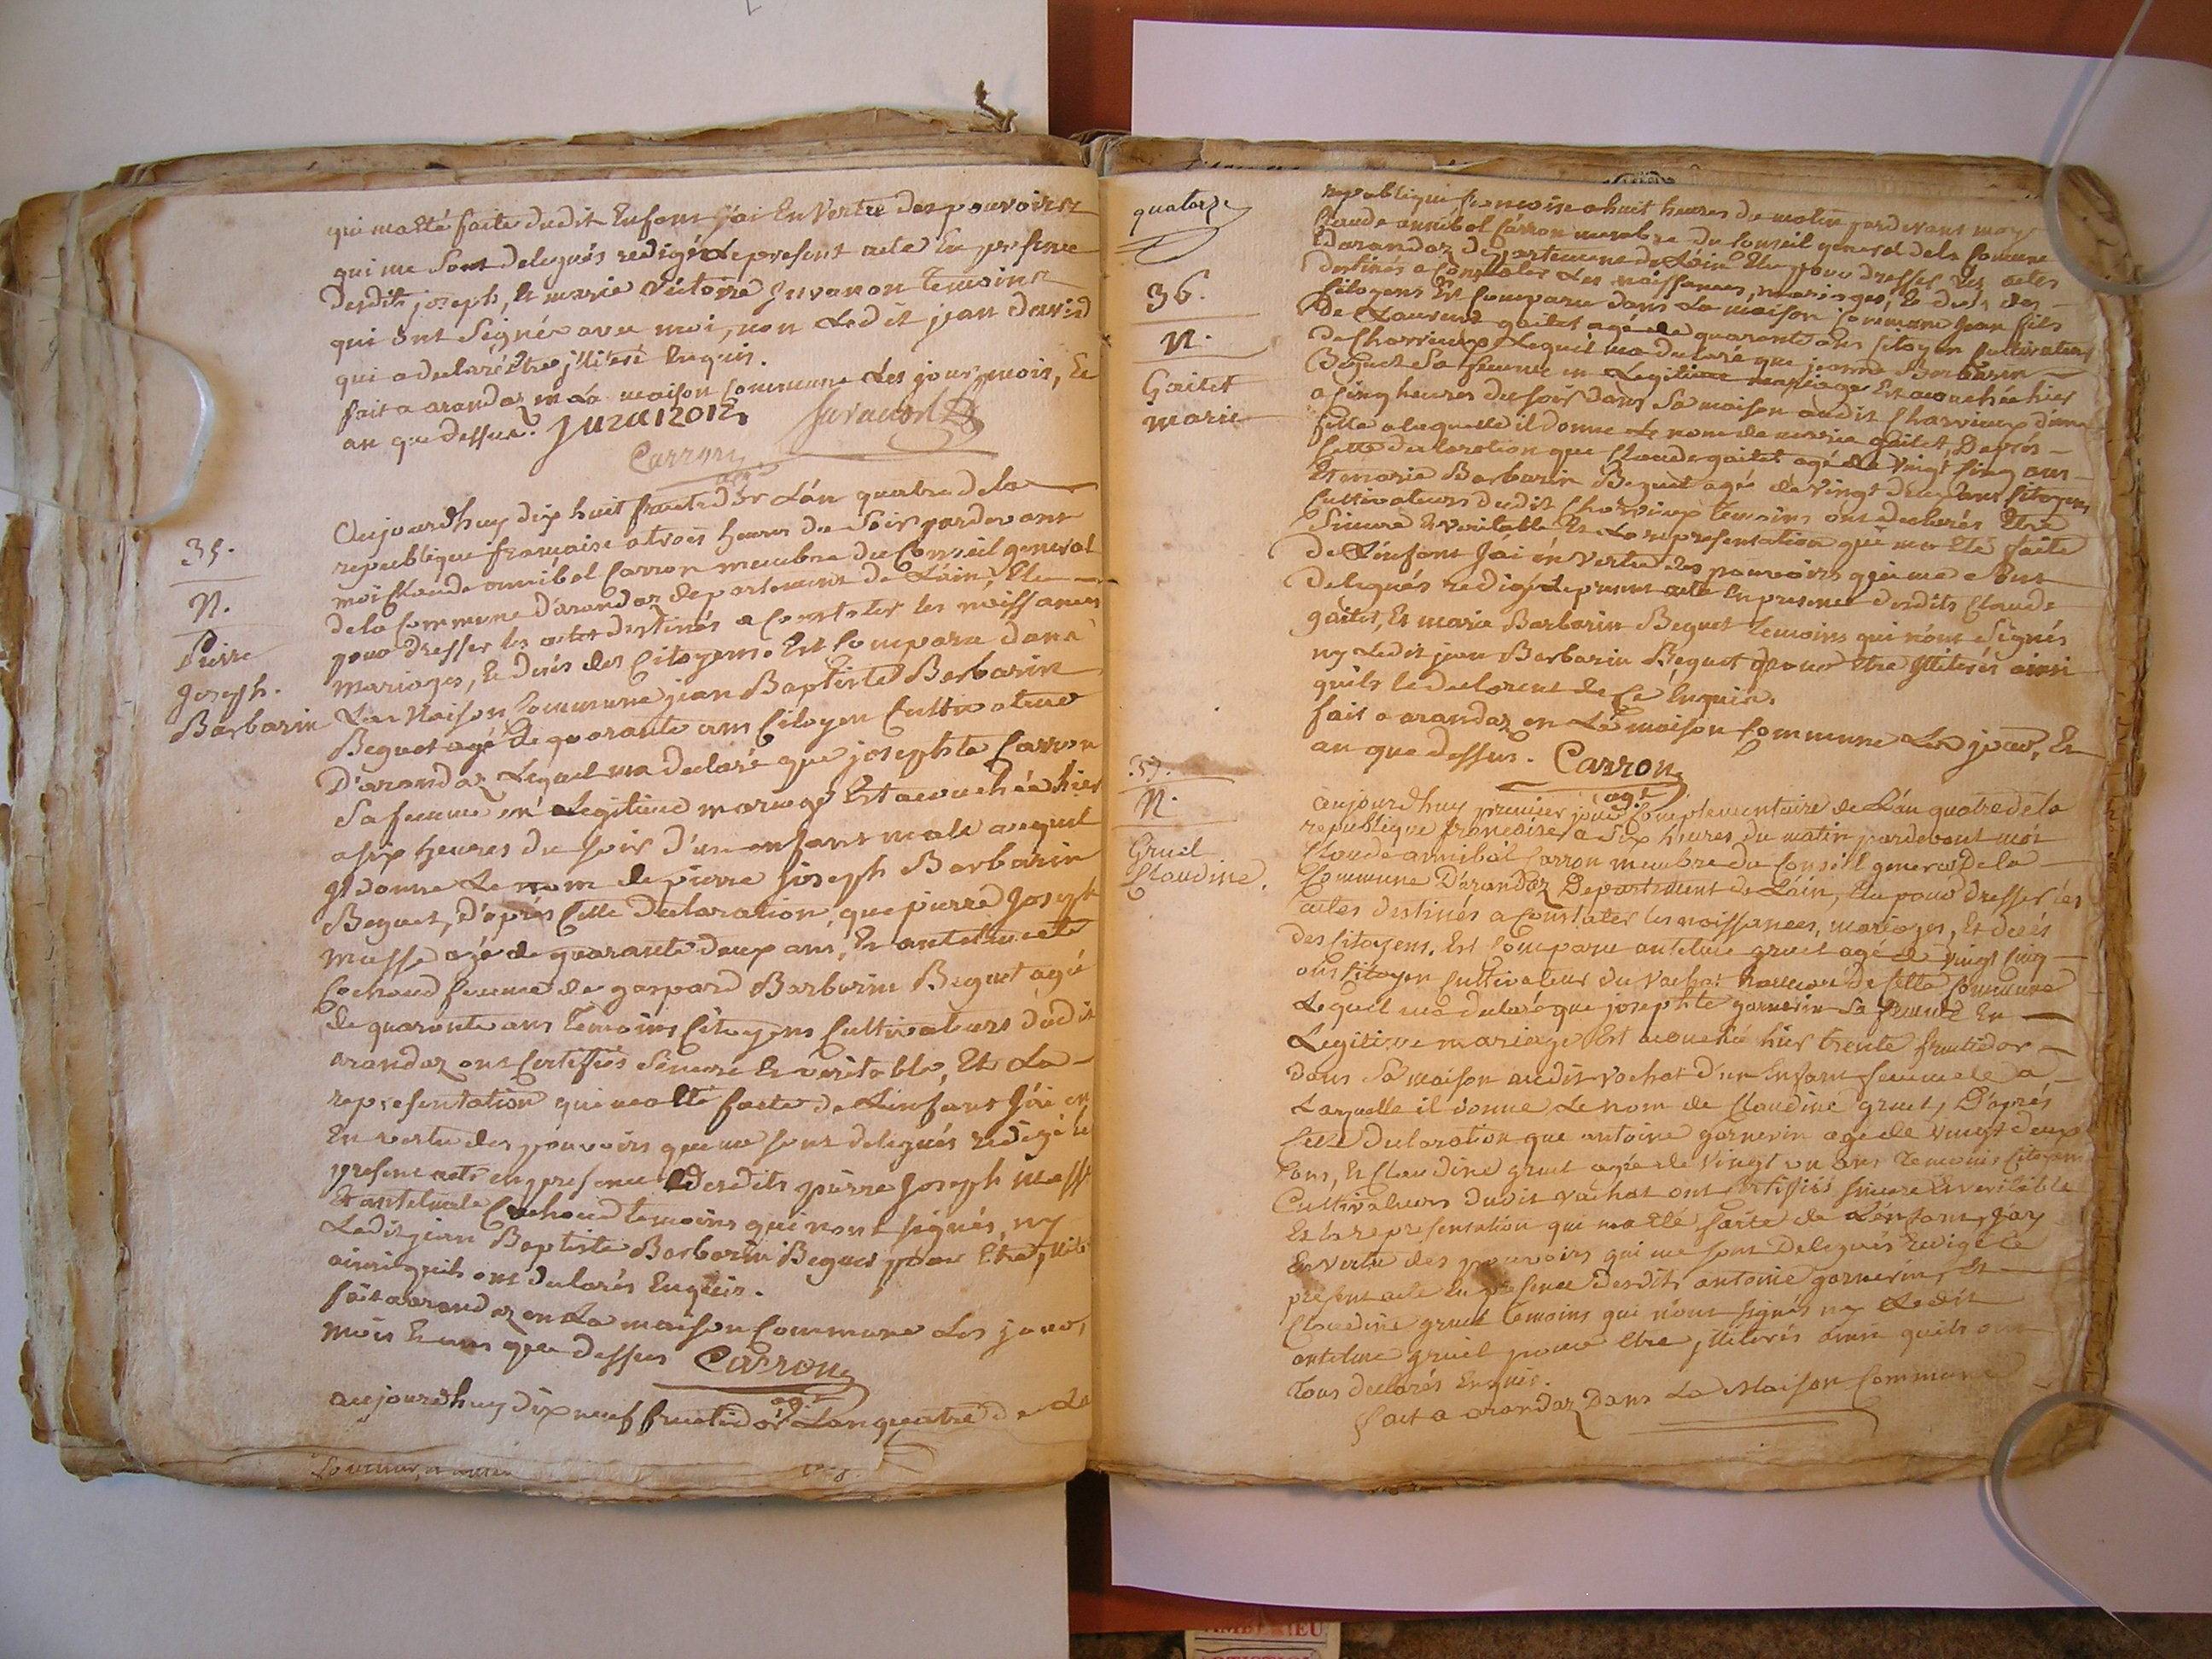 qui ma eté faite dudit Enfant J'ai En Vertu des pouvoirs
qui me Sont delegués redigé Le present acte En presence
desdits joseph, et marie Victoire Juvanon temoins
qui ont Signés avec moi, non Ledit jean david
qui a declaré Etre jlliteré Enquis.
fait a arandaz en La maison Commune Les jour, mois, Et
an que dessus.
Carron
35.
N.
Pierre
Joseph.
Barbarin
Aujourdhuy dix huit fructidor L'an quatre de la
republique française a trois heures du Soir pardevant
moi Claude annibal Carron membre du Conseil general
de la Commune d'arandaz departement de L'ain, Elu
pour dresser les actes destinés a Constater les naissances
mariages, Et decés des Citoyens. Est Comparu dans
La Maison Commune jean Baptiste Barbarin
Beguet agé de quarante ans Citoyen Cultivateur
D'arandaz Lequel ma declaré que josephte Carron
Sa femme en Legitime mariage Est acouchée hier
a six heures du soir d'un enfant male auquel
jl donne Le nom de pierre Joseph Barbarin
Beguet, D'aprés Cette declaration, que pierre Joseph
Masse agé de quarante deux ans, Et anthelmette
Cochoud femme de gaspard Barbarin Beguet agé
de quarante ans temoins Citoyens Cultivateurs dudit
arandaz ont Certifiés Sincere Et veritable, Et La
representation qui ma eté faite de L'enfant J'ai en
En vertu des pouvoirs qui me sont delegués redigé le
present acte en presence desdits pierre Joseph Masse
Et Cochoud temoins qui nont signés, ny
Ledit jean Baptiste Barbarin Beguet pour Etre
ainsi quils ont declarés Enquis.
fait a arandaz en La maison Commune Les jour,
mois Et ans que dessus Carron
agt
aujourdhuy dix neuf fructidor L'an quatre de La
quatorze
36.
N.
Gaitet
marie
republique françoise a huit heures du matin pardevant moy
Claude annibal Carron membre du Conseil general de la Commune
D'arandaz departement de L'ain Elu pour dresser les actes
destinés a Constater Les naissances, mariages, Et decés des
Citoyens Est Comparu dans La maison Commune jean fils
de Laurent gaitet agé de quarante ans Citoyen Cultivateur
de Charvieux Lequel ma declaré que jeanne Barbarin
Beguet Sa femme en Legitime mariage Est acouchée hier
a Cinq heures du soir dans Sa maison audit Charvieux d'une
fille a laquelle il donne Le nom de marie gaitet, D'aprés
Cette declaration que Claude gaitet agé de vingt Cinq ans
Et marie Barbarin Beguet agée de vingt deux ans Citoyens
Cultivateurs dudit Charvieux temoins ont declarés Etre
Sincere Et veritable Et La representation qui ma eté faite
de L'enfant J'ai en Vertu des pouvoirs qui me Sont
delegués redigé Le present acte En presence desdits Claude
gaitet, Et marie Barbarin Beguet temoins qui n'ont Signés
ny Ledit jean Barbarin Beguet pour Etre jlliterés ainsi
quils le declarent de Ce Enquis.
fait a arandaz en La maison Commune Les jour, Et
an que dessus. Carron
agt
37.
N.
Gruel
Claudine.
aujourdhuy premier jour Complementaire de L'an quatre de la
republique françoise a Six heures du matin pardevant moi
Claude annibal Carron membre du Conseil general de la
Commune D'arandaz Departement de L'ain, Elu pour dresser les
actes destinés a Constater les naissances, mariages, Et decés
des Citoyens. Est Comparu antelme gruel agé de vingt Cinq
ans Citoyen Cultivateur du Vachat hameau de Cette Commune
Lequel ma declaré que josephte garnerin Sa femme En
Legitime mariage Est acouché hier trente fructidor
dans Sa maison audit vachat d'un Enfant femmele a
Laquelle il donne Le nom de Claudine gruel, D'aprés
Cette declaration que antoine garnerin agé de vingt deux
ans, Et Claudine gruel agée de vingt un ans temoins Citoyens
Cultivateurs dudit vachat ont Certifiés sincere Et veritable
Et la representation qui ma eté faite de L'enfant, Jay
En Vertu des pouvoirs qui me sont Delegués redigé le
present acte En presence Desdits antoine garnerin, Et
Claudine gruel temoins qui n'ont signés ny Ledit
antelme gruel pour Etre jlliterés ainsi quils ont
tous declarés Enquis.
fait a arandaz Dans La Maison Commune